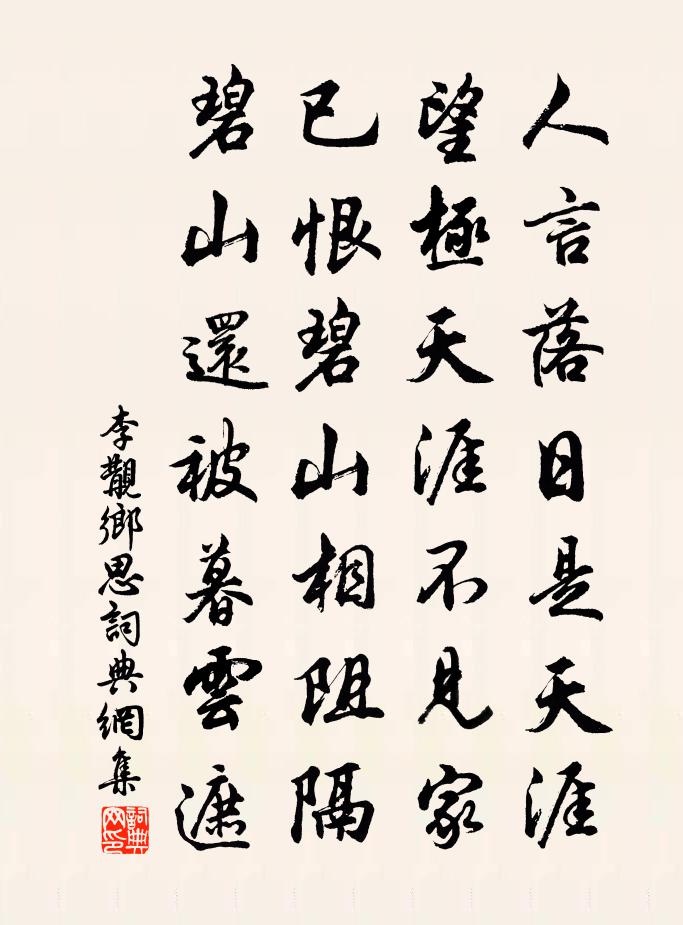 人言落日是天涯
望極天涯不見家
已恨碧山相阻隔
碧山還被暮雲遮
李覯鄉思詞典網集
詞典
网印